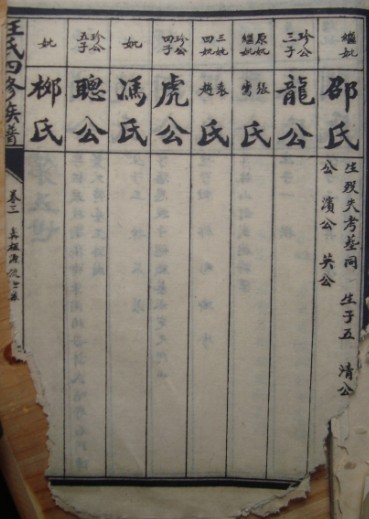 繼妣
邵氏
生歿失考墓同 生子五 清公
公 濱公 英公
珍公
三子
龍公
原妣 張
繼妣
氏
三妣 袁
四妣 趙
氏
珍公
四子
虎公
妣
馮氏
珍公
五子
聰公
妣
柳氏
汪氏四修族譜